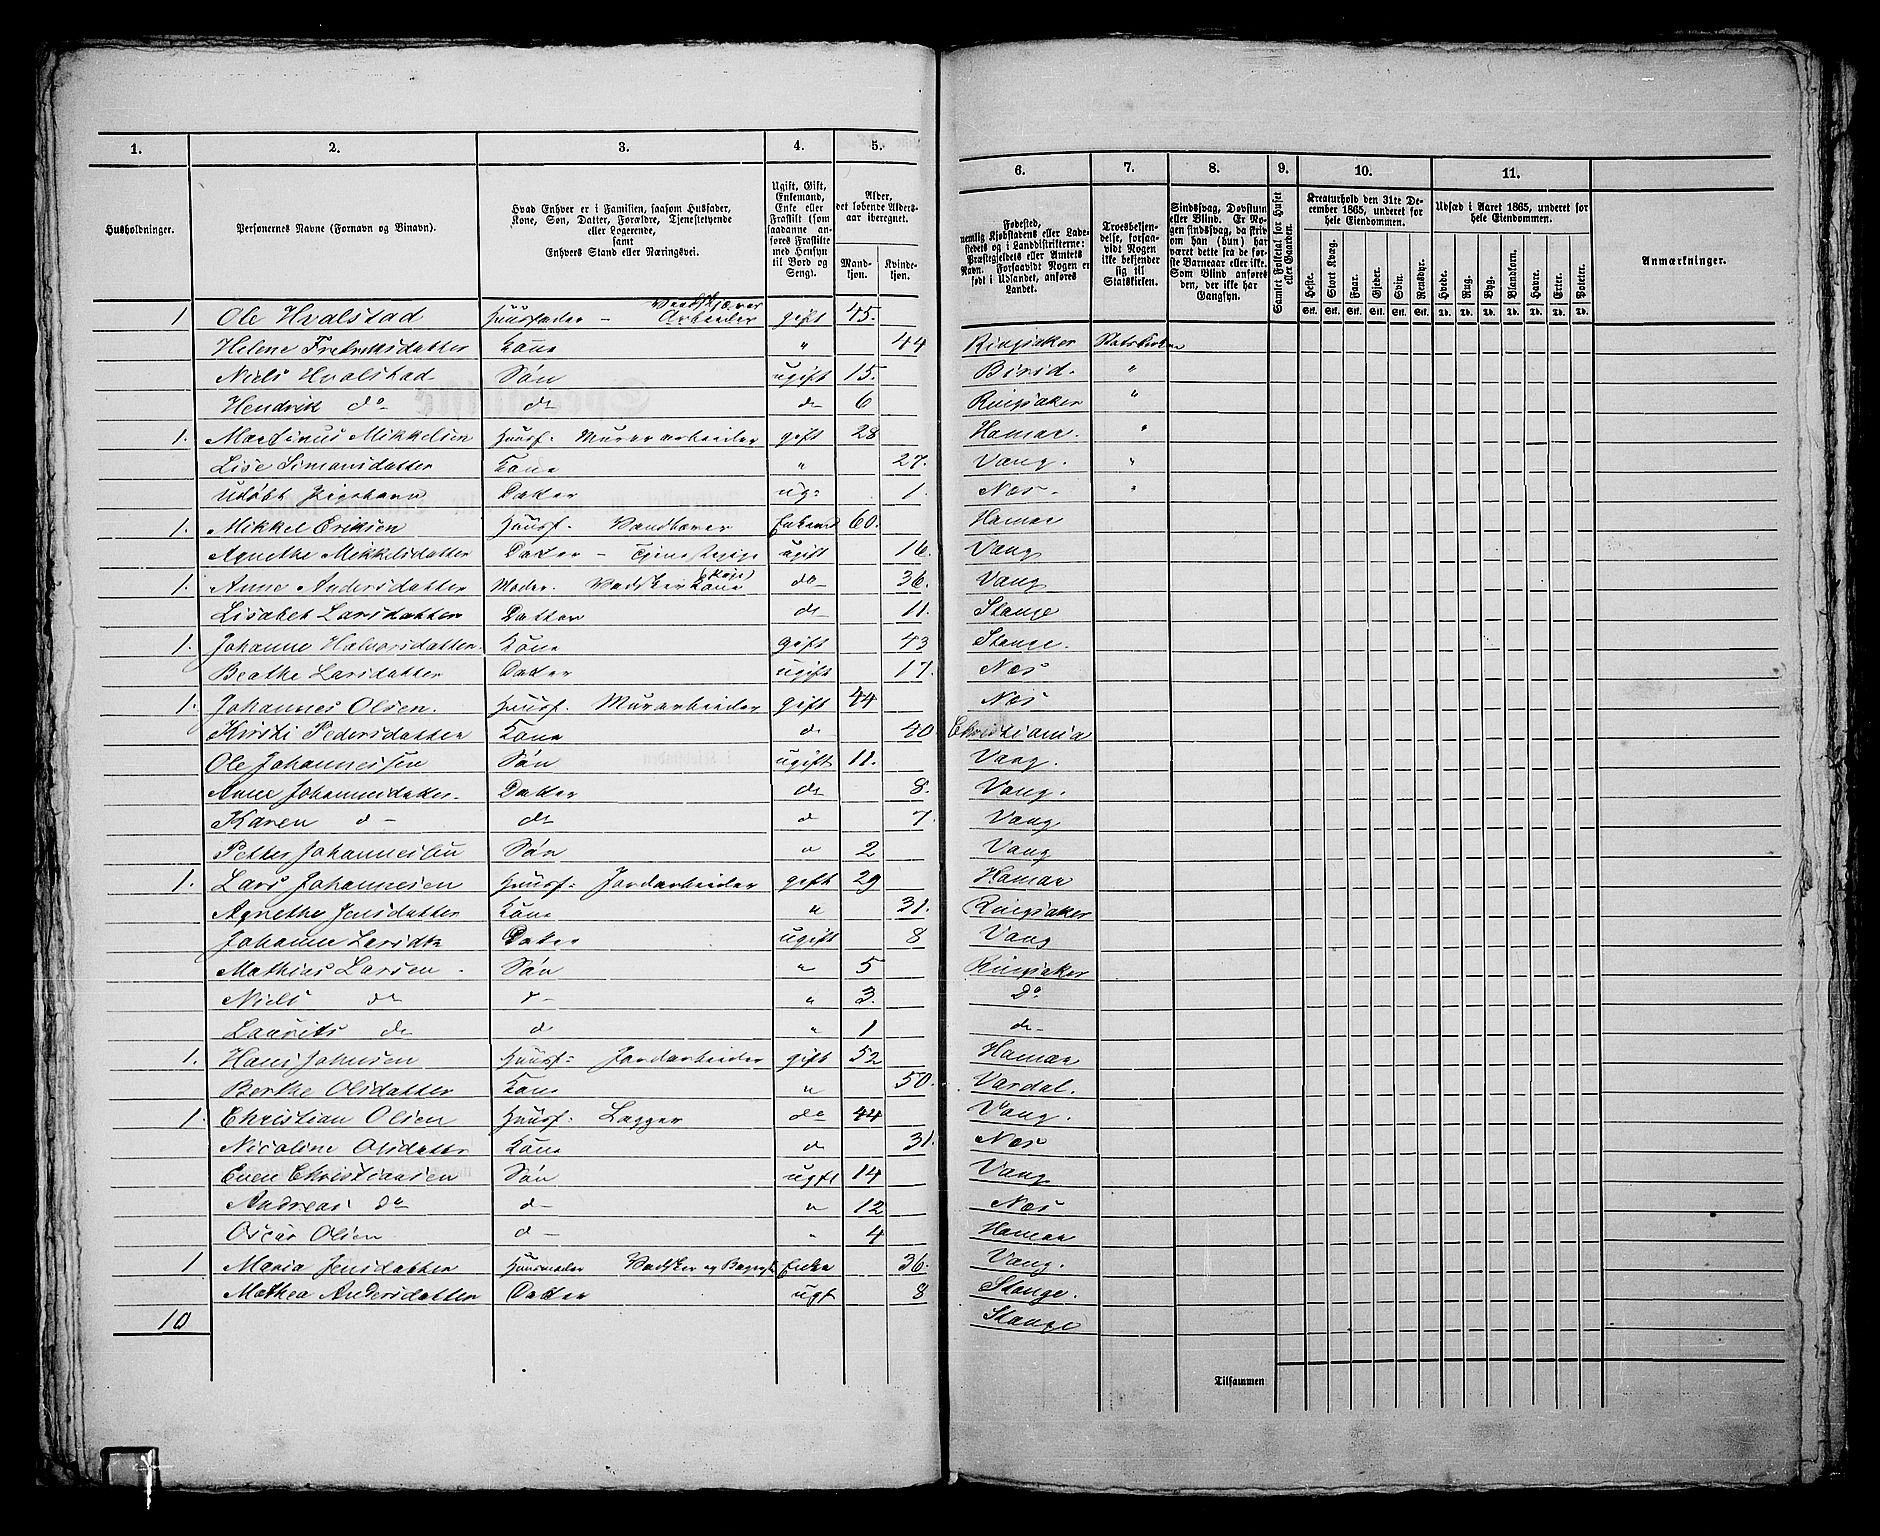 1. 2. 3. 4. 5.
Husholdninger.
Personernes Navne (Fornavn og Binavn).
Hvad Enhver er i Familien, saasom Husfader,
Kone, Søn, Datter, Forældre, Tjenestetyende
eller Logerende,
samt
Enhvers Stand eller Næringsvei.
Ugift, Gift,
Enkemand,
Enke eller
Fraskilt (som
saadanne an-
føres Fraskilte
med Hensyn
til Bord og
Seng).
Alder,
det løbende Alders-
aar iberegnet.
Mand-
kjøn.
Kvinde-
kjøn.
1 Ole Hvalstad Huusfader – Arbeider gift 45.
Helene Fredriksdatter Kone " 44
Niels Hvalstad Søn ugift 15.
Hendrik do do do 6
1. Martinus Mikkelsen Huusf. Murarbeider gift 28
Lise Simensdatter Kone " 27.
Udøbt Pigebarn Datter ug: 1.
1. Mikkel Eriksen Huusf. Vandbærer Enkemd 60.
Agnethe Mikkelsdatter Datter – ugift 16.
1. Anne Andersdatter Moder. Vadsker Kone do 36.
Lisabet Larsdatter Datter do 11.
1. Johanne Halvorsdatter Kone gift 43
Beathe Larsdatter Datter ugift 17.
1. Johannes Olsen. Huusf. Murarbeider gift 44
Kirsti Pedersdatter Kone d 40
Ole Johannessen Søn ugift 11.
Anne Johannesdatter. Datter do 8.
Karen d– do d 7.
Petter Johannessen Søn " 2
1. Lars Johannesen Huusf: Jordarbeider gift 29
Agnethe Jensdatter Kone " 31.
Johanne Larsdtr Datter ugift 8
Mathias Larsen Søn " 5
Niels do d– " 3.
Laurits do d " 1
1. Hans Johnsen Huusf: Jordarbeider gift 52
Berthe Olsdatter Kone " 50.
1. Christian Olsen Huusf. Lagger do 44
Nicoline Olsdatter Kone d 31.
Even Christiansen Søn ugft 14
Andreas do d– " 12
Oscar Olsen d– " 4
1 Maria Jensdatter Huusmoder Vadsker og Enke 36.
Mathea Andersdatter Datter ugt 8
10
6. 7. 8. 9. 10. 11.
Fødested,
nemlig Kjøbstadens eller Lade-
stedets og i Landdistrikterne:
Præstgjeldets eller Amtets
Navn. Forsaavidt Nogen er
født i Udlandet, anføres
Landet.
Troesbekjen-
delse, forsaa-
vidt Nogen
ikke bekjender
sig til
Statskirken.
Sindssvag, Døvstum
eller Blind. Er No-
gen sindssvag, da skriv
om han (hun) har
været dette fra de før-
ste Barneaar eller ikke.
Som Blind anføres
den, der ikke har
Gangsyn.
Samlet Folketal for Huset
eller Gaarden.
Kreaturhold den 31te De-
cember 1865, underet for
hele Eiendommen.
Heste. Stort Kvæg. Faar. Gjeder. Svin. Rensdyr.
Stk. Stk. Stk. Stk. Stk. Stk.
Udsæd i Aaret 1865, underet for
hele Eiendommen.
Hvede. Rug. Byg. Blandkorn. Havre. Erter. Poteter.
Td. Td. Td. Td. Td. Td. Td.
Anmærkninger.
Ringsaker Statskirken
Birid. "
Ringsaker "
Hamar. "
Vang. "
Næs. "
Hamar
Vang
Vang
Stange
Stange.
Næs
Næs
Christiania
Vang.
Vang.
Vang
Vang
Hamar
Ringsaker
Vang
Ringsaker
Do
do–
Hamar
Vardal.
Vang.
Næs
Vang
Næs
Hamar
Vang.
Stange.
Stange
Tilsammen